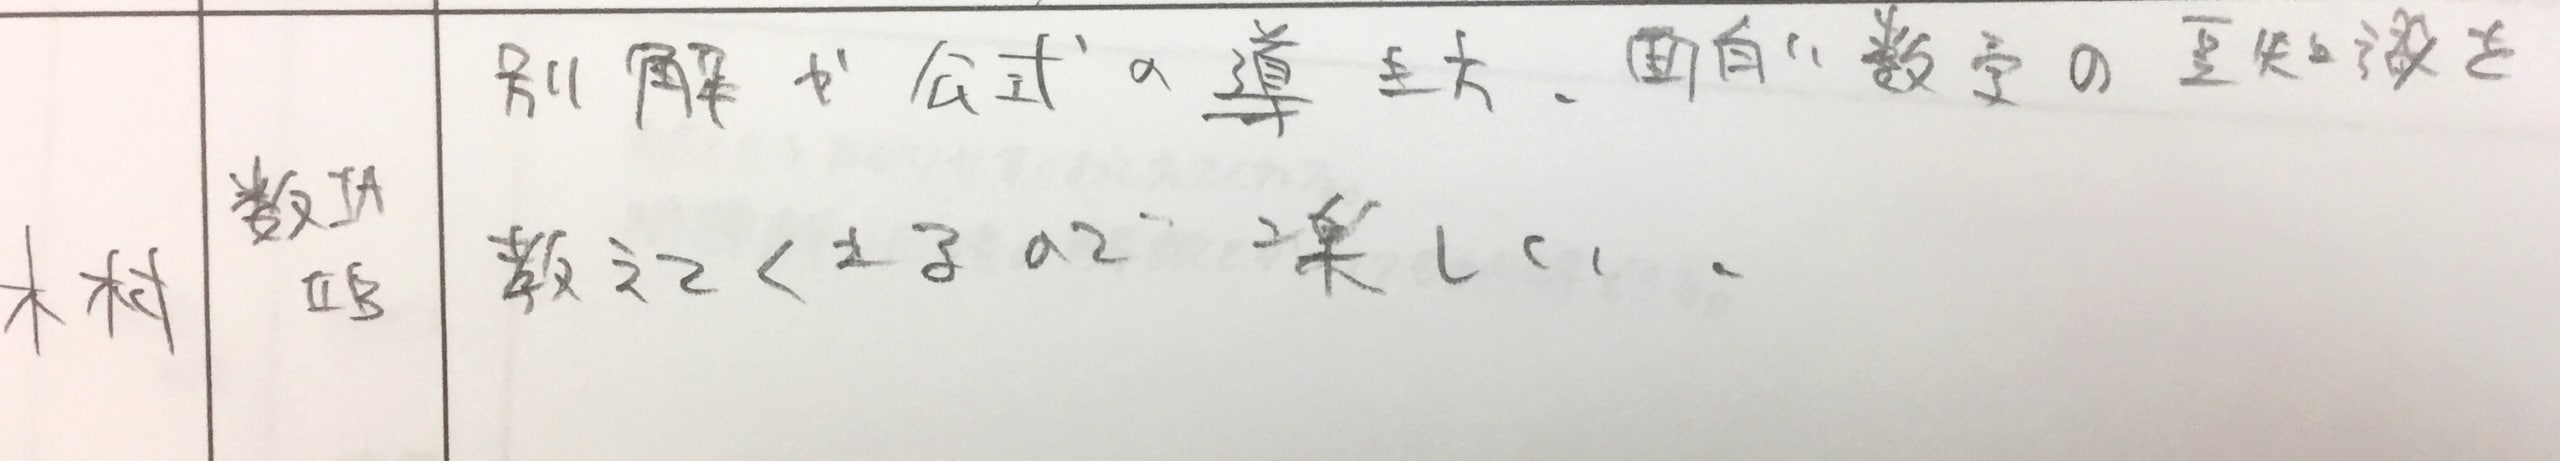 別解や公式の導き方、面白い数学の豆知識を
数IA
教えてくださるので楽しい、
IIB
木村